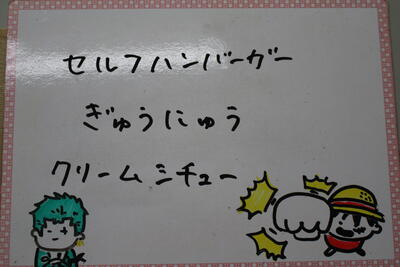 セルフハンバーガー
ぎゅうにゅう
クリームシチュー